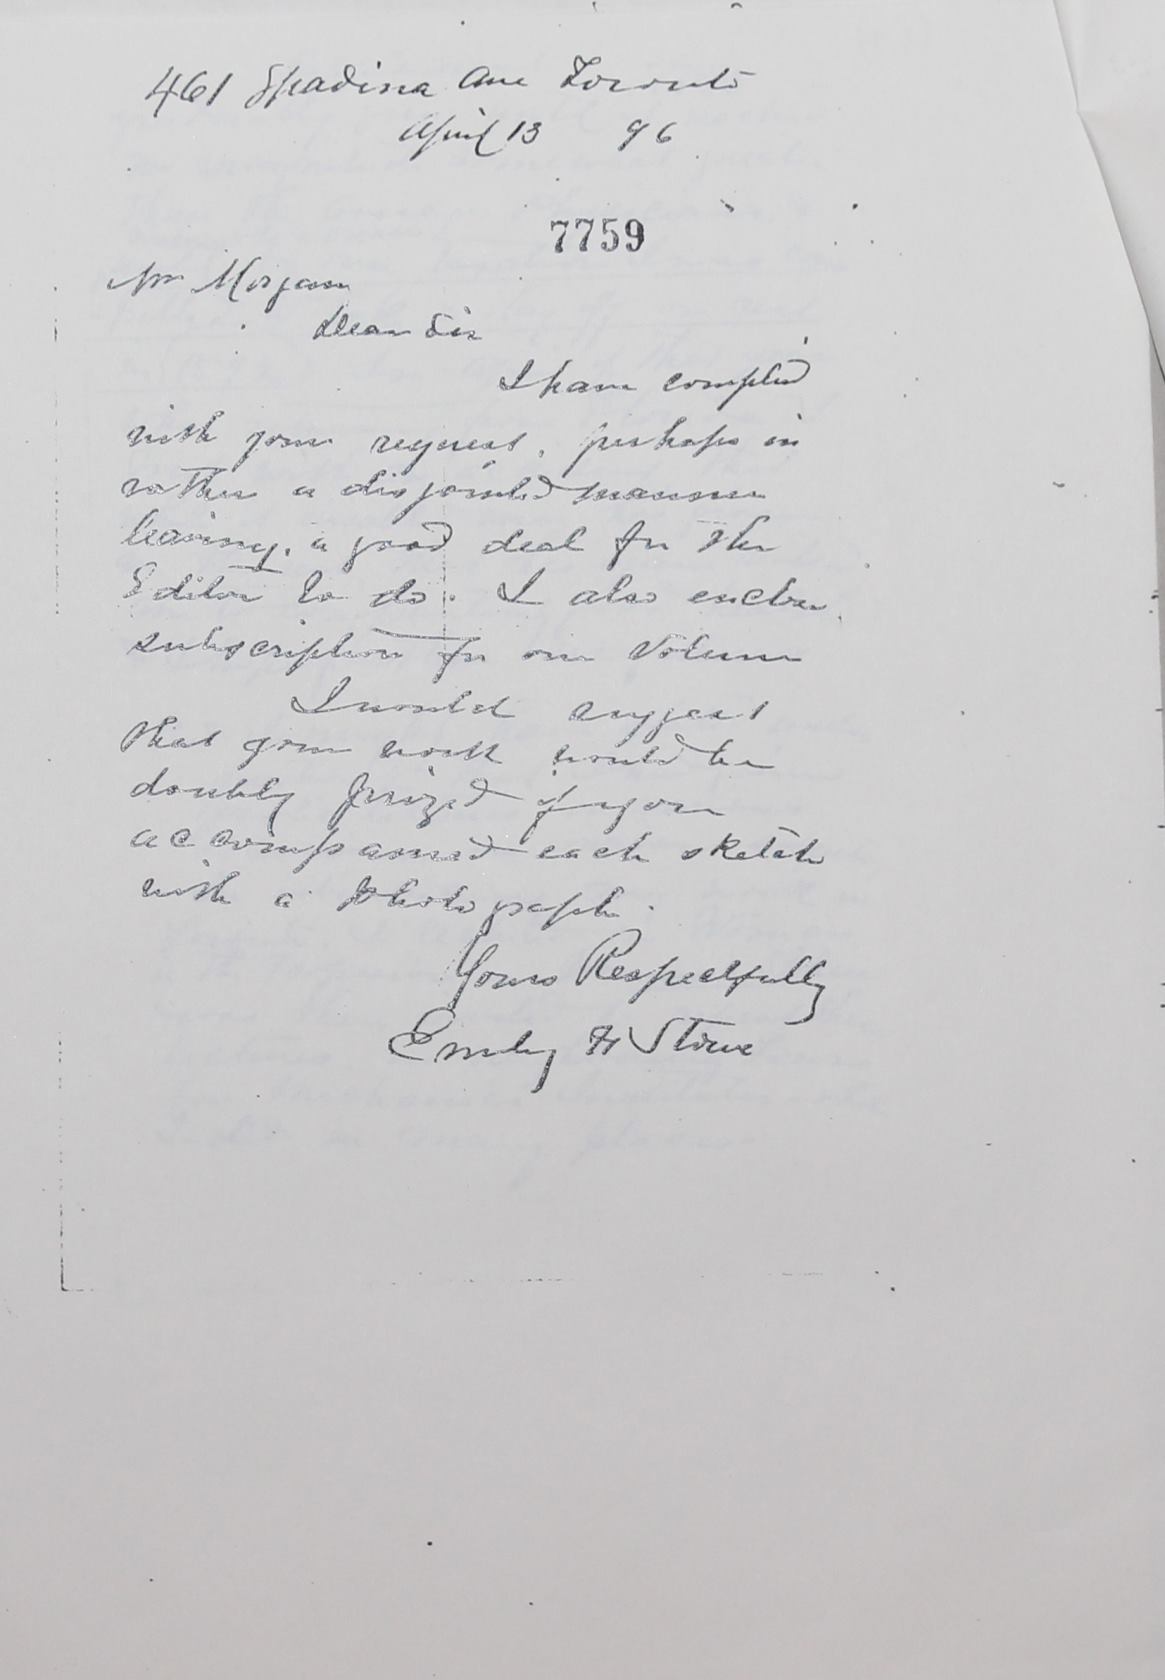 461 Spadina Ave Toronto
April 13 96
7759
Mr Morgan
Dear Sir
I have complied
with your request, perhaps in
rather a disjointed manner
leaving, a good deal for the
Editor to do. I also enclose
subscription for one Volume
I would suggest
that your work would be
doubly prized if you
accompanied each sketch
with a Photograph.
Yours Respectfully
Emily H Stowe